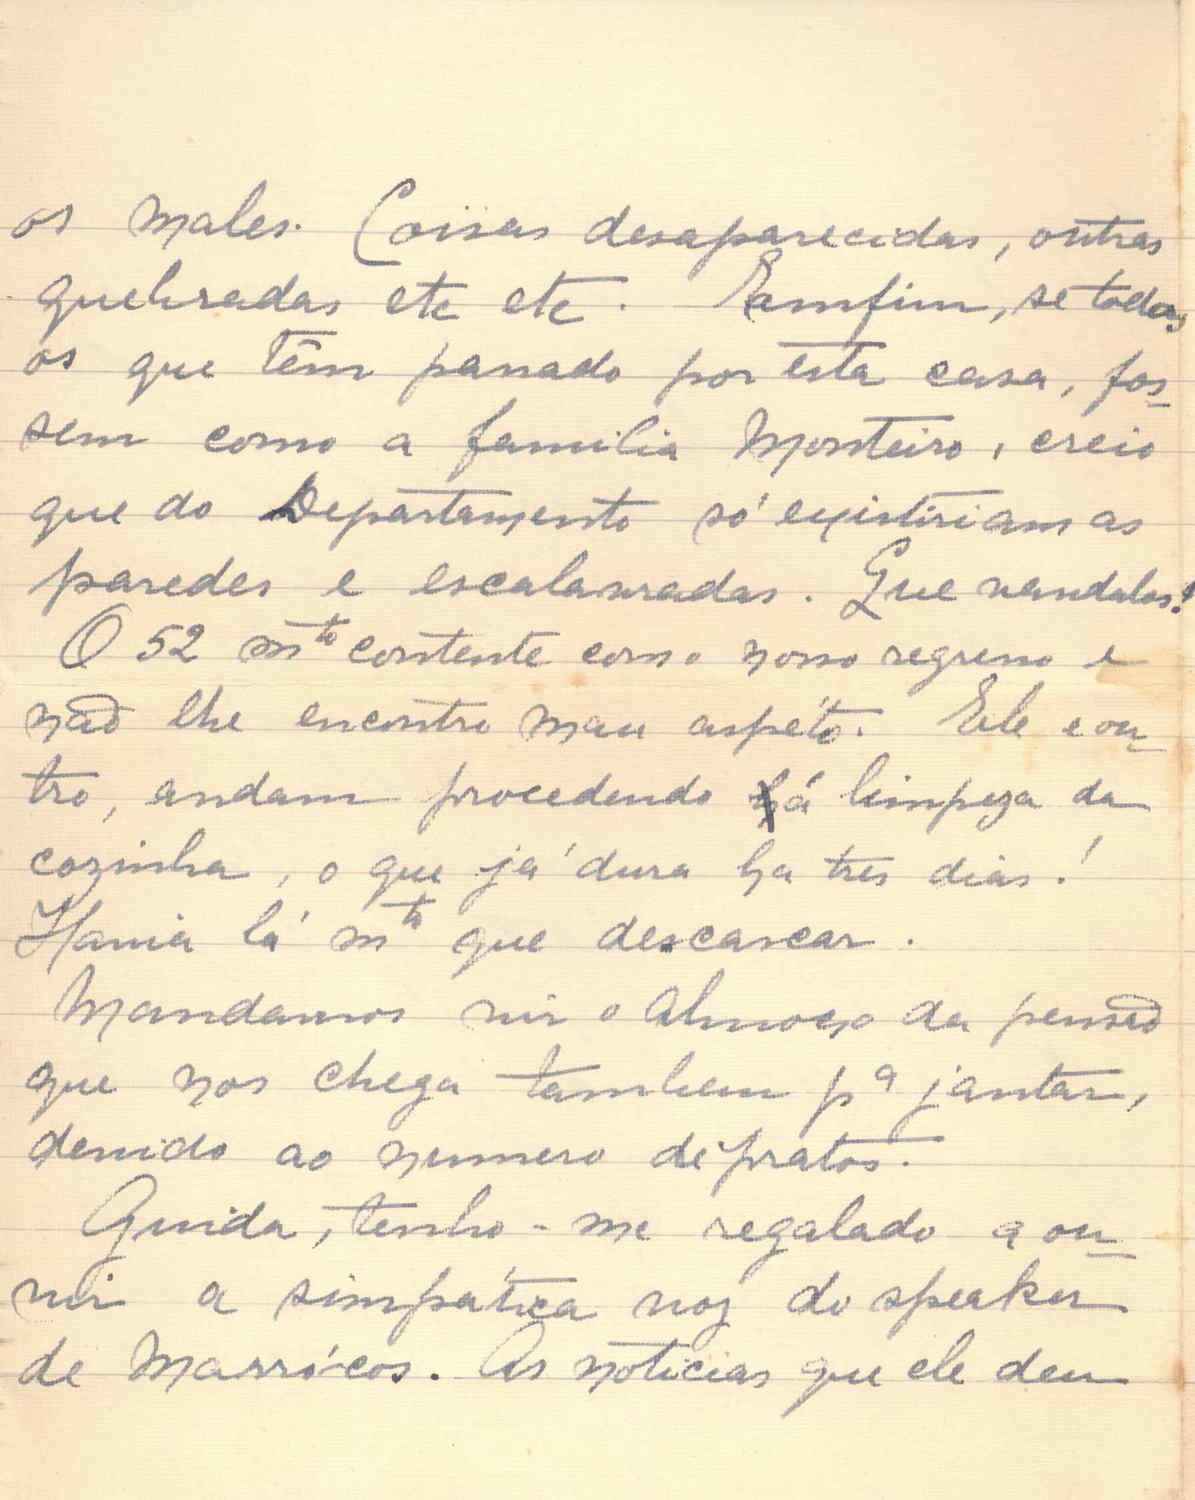 os males. Coisas desaparecidas, outras
quebradas etc etc. Emfim, se todos
os que têm passado por esta casa, fos-
sem como a familia Monteiro, creio
que do Departamento só existiriam as
paredes e escalavradas. Que vandalos!
O 52 mto contente com o nosso regresso e
não lhe encontro mau aspéto. Ele e ou-
tro, andam procedendo á limpeza da
cozinha, o que já dura ha tres dias!
Havia lá mto que descascar.
Mandamos vir o almoço da pensão
que nos chega tambem pª jantar,
devido ao numero de pratos.
Guida, tenho-me regalado a ou-
vir a simpática voz do speaker
de Marrócos. As noticias que ele deu